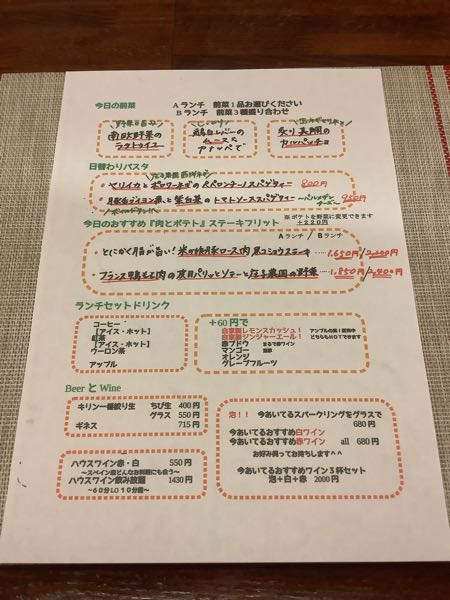 今日の前菜
Aランチ 前菜1品お選びください
Bランチ 前菜3種盛り合わせ
南欧野菜の
ラタトゥイユ
鶏白レバーの
ムースを
炙り真鯛の
カルパッチョ
日替わりパスタ
ヤリイカと のペペロンチーノスパゲティー 800円
のトマトソーススパゲティー 950円
今日のおすすめ『肉とポテト』ステーキフリット
※ポテトを野菜に変更できます
+220円
Aランチ / Bランチ
・とにかく脂が旨い! 豚ロース肉 黒コショウステーキ 1,650円/2,200円
・フランス鴨もも肉の皮目パリッとソテーと の野菜 1,850/2,400円
ランチセットドリンク
コーヒー
【アイス・ホット】
紅茶
【アイス・ホット】
ウーロン茶
アップル
+60円で
自家製レモンスカッシュ!
自家製ジンジャーエール!
どちらもHOTできます
赤ブドウ まるで赤ワイン
マンゴー
オレンジ
グレープフルーツ
Beer と Wine
キリン一番搾り生 ちび生 400円
グラス 550円
ギネス 715円
ハウスワイン赤・白 550円
～スペイン産どんなお料理にも合う～
ハウスワイン飲み放題 1430円
～60分LO10分前～
泡!! 今あいてるスパークリングをグラスで
680円
今あいてるおすすめ白ワイン
今あいてるおすすめ赤ワイン all 680円
お好み伺ってお持ちします^^
今あいてるおすすめワイン3杯セット
泡+白+赤 2000円